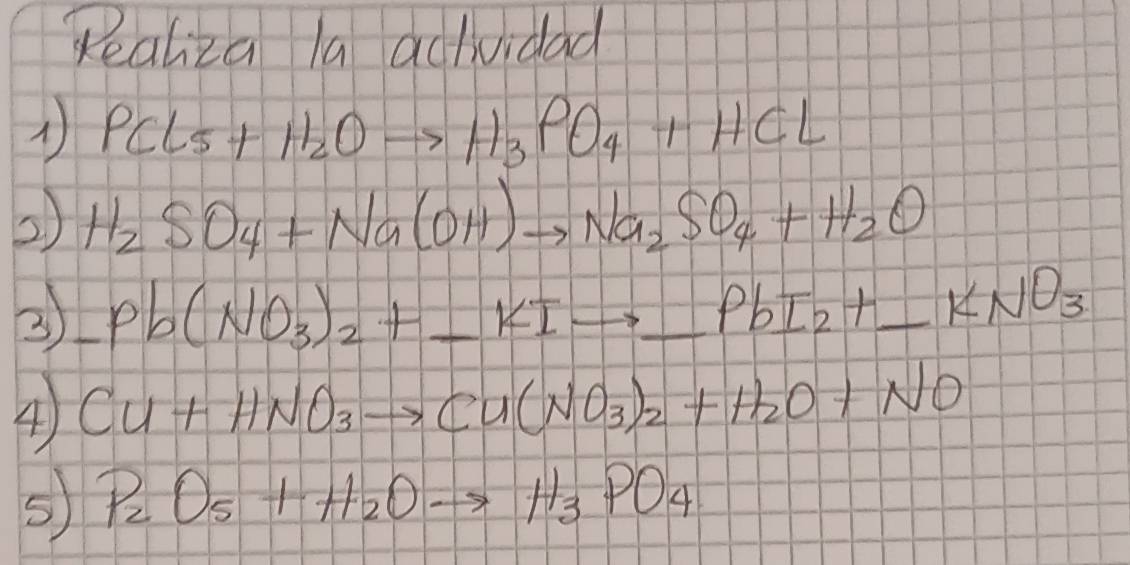 Realiza la actividad
1) PCl₅ + H₂O → H₃PO₄ + HCL
2) H₂SO₄ + Na(OH) → Na₂SO₄ + H₂O
3) _Pb(NO₃)₂ + _ KI → _ PbI₂ + _ KNO₃
4) Cu + HNO₃ → Cu(NO₃)₂ + H₂O + NO
5) P₂O₅ + H₂O → H₃PO₄